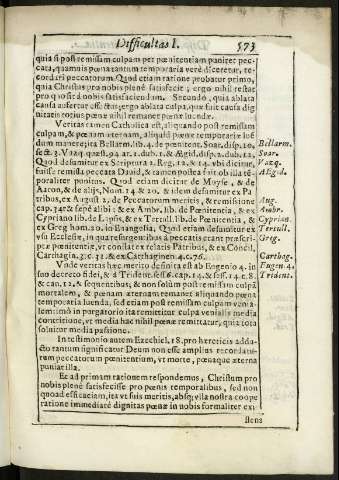 Difficultas I. 573
quia si post remissam culpam per pœnitentiam puniret pec-
cata, quamuis pœna tantum temporaria verè diceretur, re-
cordari peccatorum. Quod etiam ratione probatur primo,
quia Christus pro nobis plenè satisfecit, ergo nihil restat
pro quo sit à nobis satisfaciendum. Secundo, quia ablata
causa aufertur effectus, ergo ablata culpa, quæ fuit causa dig
nitatis totius pœnæ nihil remanet pœnæ luendæ.
Veritas tamen Catholica est, aliquando post remissam
culpam, & pœnam æternam, aliquid pœnæ temporariæ luē
dum manere; ita Bellarm. lib. 4. de pœnitent. Soar. disp. 10.
sect. 3. Vazq. quæst. 94. ar. 1. dub. 1. & Ægid. disp. 2. dub. 12.
Quod desumitur ex Scriptura 2. Reg. 12. & 24. vbi dicitur,
fuisse remissa peccata Dauid, & tamen postea fuit ob illa tē-
poraliter punitus. Quod etiam dicitur de Moyse, & de
Aaron, & de alijs, Num. 14. & 20. & idem desumitur ex Pa
tribus, ex August 2. de Peccatorum meritis, & remissione
cap. 34. & sæpe alibi: & ex Ambr. lib. de Pœnitentia, & ex
Cypriano lib. de Lapsis, & ex Tertull. lib. de Pœnitentia, &
ex Greg. hom. 20. in Euangelia. Quod etiam desumitur ex
vsu Ecclesiæ, in qua resurgentibus à peccatis erant præscri-
ptæ pœnitentiæ, vt constat ex relatis Patribus, & ex Concil.
Carthagin. 3. c. 31. & ex Carthaginen. 4. c. 76.
Vnde veritas hæc merito definita est ab Eugenio 4. in
suo decreto fidei, & à Trident. sess. 6. cap. 14. & sess. 14. c. 8
& can. 12. & sequentibus, & non solùm post remissam culpā
mortalem, & pœnam æternam remanet aliquando pœna
temporaria luenda, sed etiam post remissam culpam venia
lem: imò in purgatorio ita remittitur culpa venialis media
contritione, vt media hac nihil pœnæ remittatur, quia tota
soluitur media passione.
In testimonio autem Ezechiel. 18. pro hæreticis addu-
cto tantum significatur Deum non esse amplius recordatu-
rum peccatorum pœnitentium, vt morte, pœnaque æterna
puniat illa.
Et ad primam rationem respondemus, Christum pro
nobis plenè satisfecisse pro pœnis temporalibus, sed non
quoad efficaciam, ita vt suis meritis, absq; vlla nostra coope
ratione immediatè dignitas pœnæ in nobis formaliter exi
stens
Bellarm.
Soar.
Vazq.
AEgid.
Aug.
Ambr.
Cyprian.
Tertull.
Greg.
Carthag.
Eugen 4.
Trident.